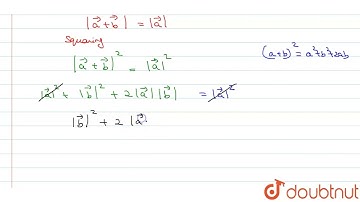 |a⃗+b⃗| = |a⃗|
Squaring
|a⃗+b⃗|² = |a⃗|²
(a+b)² = a²+b²+2ab
|a⃗|² + |b⃗|² + 2|a⃗||b⃗| = |a⃗|²
|b⃗|² + 2|a⃗|
doubtnut